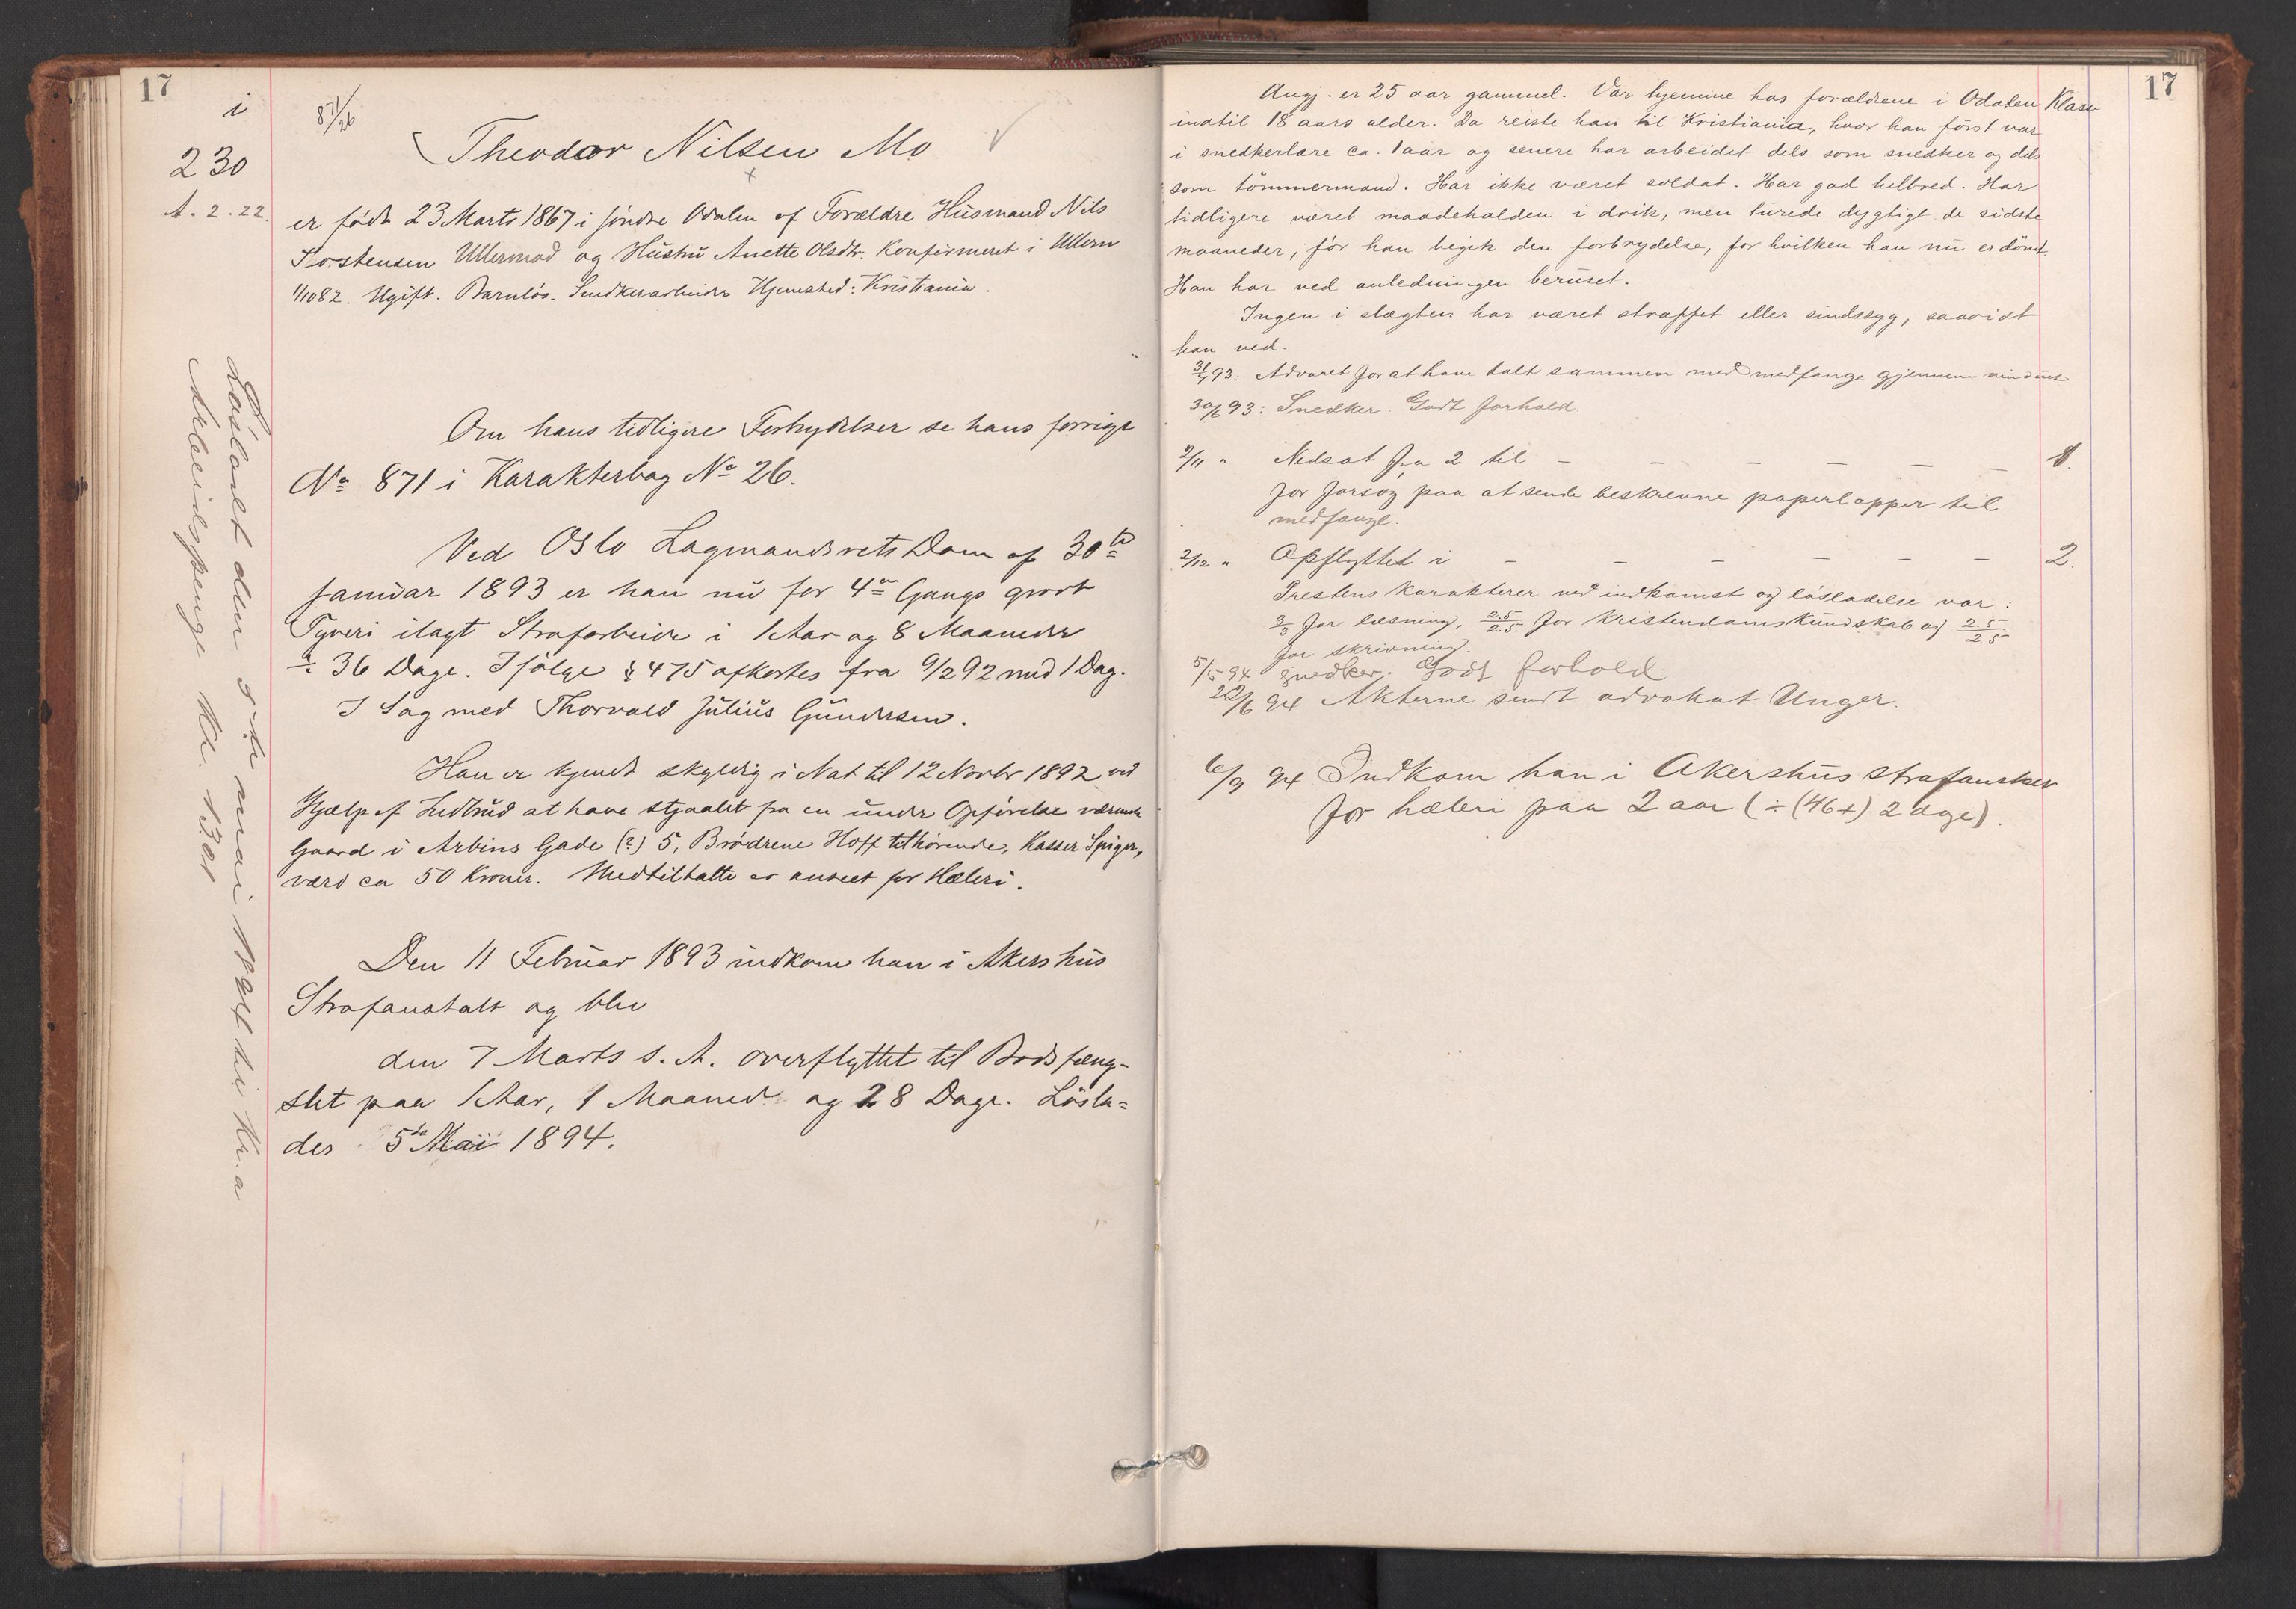 17
i
230
A. 2. 22.
871/26
Theodor Nilsen Mo
er født 23 Marts 1867 i søndre Odalen af Forældre Husmand Nils
Ullernmod og Hustru Anette Olsdtr. Konfirmeret i Ullern
1/10 82. Ugift. Barnløs. Snedkerarbeider Hjemsted: Kristiania.
Om hans tidligere Forbrydelser se hans forrige
No 871 i Karakterbog No 26.
Ved Oslo Lagmandsrets Dom af 30te
Januar 1893 er han nu for 4de Gangs grovt
Tyveri ilagt Strafarbeide i 1 Aar og 8 Maaneder
÷ 36 Dage. Ifølge § 475 afkortes fra 9/2 92 med 1 Dag.
I Sag med Thorvald Julius Gundersen.
Han er kjendt skyldig i Nat til 12 Novbr 1892 ved
Hjælp af Indbrud at have stjaalet fra en under Opførelse værende
Gaard i Arbins Gade (?) 5, Brødrene Hoff tilhørende, Kasser Spiger,
værd ca 50 Kroner. Medtiltalte er anseet for Hæleri.
Den 11 Februar 1893 indkom han i Akershus
Strafanstalt og blev
den 7 Marts s. A. overflyttet til Bodsfæng-
slet paa 1 Aar, 1 Maaned og 28 Dage. Løsla-
des 5te Mai 1894.
Løsladt den 5te mai 1894 til Kr.a
Arbeidspenge Kr. 13.01
17
Klasse
Angj. er 25 aar gammel. Var hjemme hos forældrene i Odalen
indtil 18 aars alder. Da reiste han til Kristiania, hvor han først var
i snedkerlære ca. 1 aar og senere har arbeidet dels som snedker og dels
som tømmermand. Har ikke været soldat. Har god helbred. Har
tidligere været maadeholden i drik, men turede dygtigt de sidste
maaneder, før han begik den forbrydelse, for hvilken han nu er dømt.
Han var ved anledningen beruset.
Ingen i slægten har været straffet eller sindssyg, saavidt
han ved.
93: Advaret for at have talt sammen med medfange gjennem vinduet
30/6 93: Snedker. Godt forhold.
2/11 " Nedsat fra 2 til - - - - - 1.
for forsøg paa at sende beskrevne papirlapper til
medfange.
2/12 " Opflyttet i - - - - - 2.
Prestens karakterer ved indkomst og løsladelse var:
3/3 for læsning, 2.5/2.5 for kristendomskundskab og 2.5/2.5
for skrivning.
5/5 94 snedker. Godt forhold.
22/6 94 Akterne sendt advokat Unger.
6/9 94 Indkom han i Akershus strafanstalt
for hæleri paa 2 aar (÷ (46+) 2 dage).